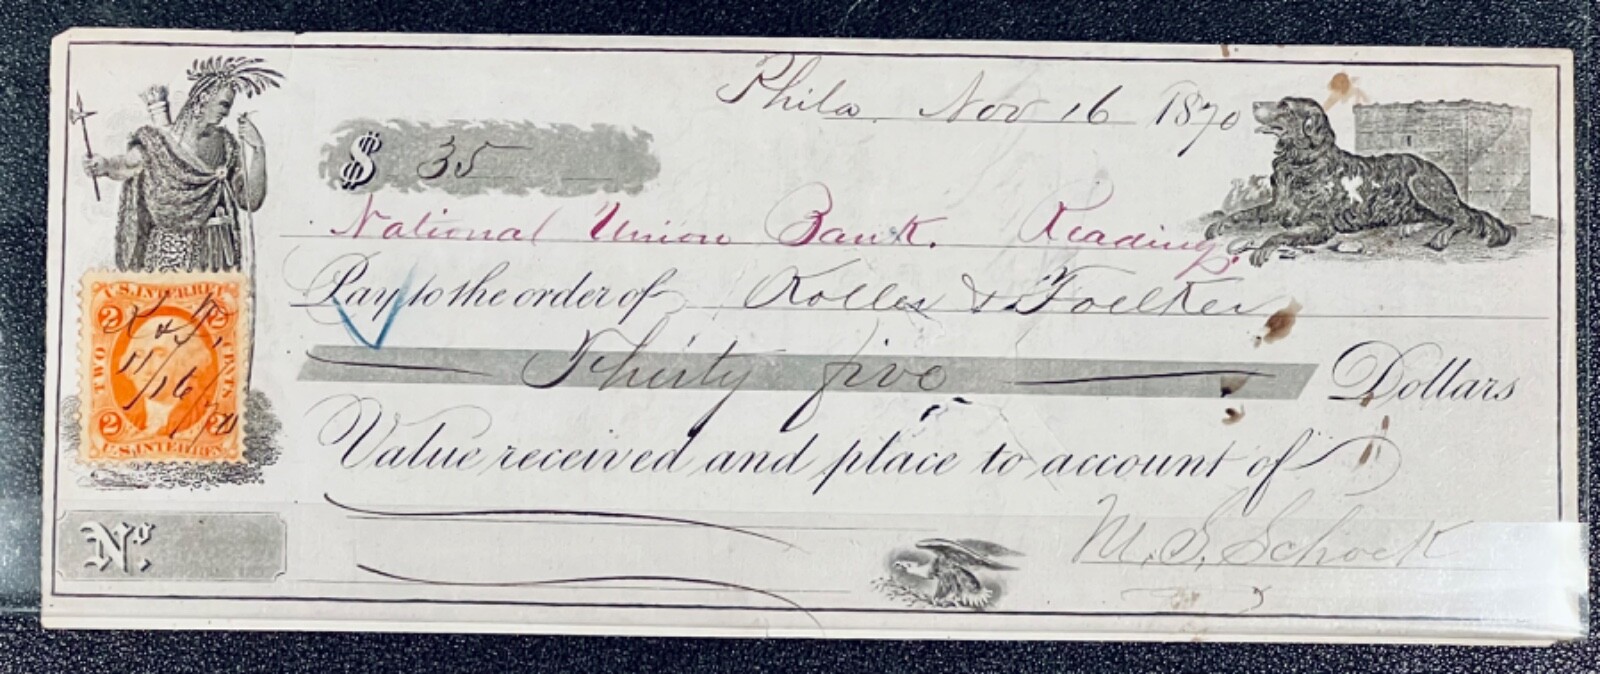 Phila. Nov 16 1870
$ 35
National Union Bank. Reading.
Pay to the order of Koller & Foelker
Thirty five Dollars
Value received and place to account of
M. S. Schock
No.
U.S. INTER. REV.
2 2
TWO CENTS
K & F.
11/16/70
2 2
U.S. INTER. REV.